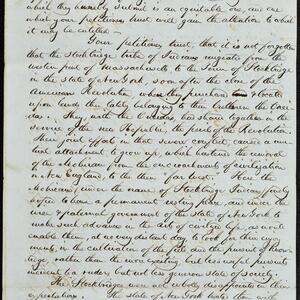 which they humbly submit is an equitable one, and one
which your petitioners trust will gain the attention to which
it may be entitled –
Your petitioners trust, that it is not forgotten
that the Stockbridge tribe of Indians emigrate from the
western part of Massachusetts to the Town of Stockbridge
in the state of New York soon after the close of the
American Revolution, when they purchased & located
upon lands then lately belonging to their brethren the Onei-
das. They, with the Oneidas, had shown together in the
service of the new Republic, the perils of the Revolution.
Their joint efforts in that severe conflict, caused a mu-
tual attachment to grow up, which hastened the removal
of the Mohicans from the encroachments of civilization
in New England, to the then "far West". Here the
Mohicans, under the name of Stockbridge Indians, fondly
hoped to have a permanent resting place, and under the
wise & paternal government of the state of New York to
make such advances in the arts of civilized life, as would
enable them, at no very distant day to look for their enjoy-
ments, in the cultivation of the fields and the pursuit of know-
ledge, rather than the more exciting but less useful pursuits
incident to a ruder but not less generous state of society.
The Stockbridges were not wholly disappointed in their
expectations. The state of New York